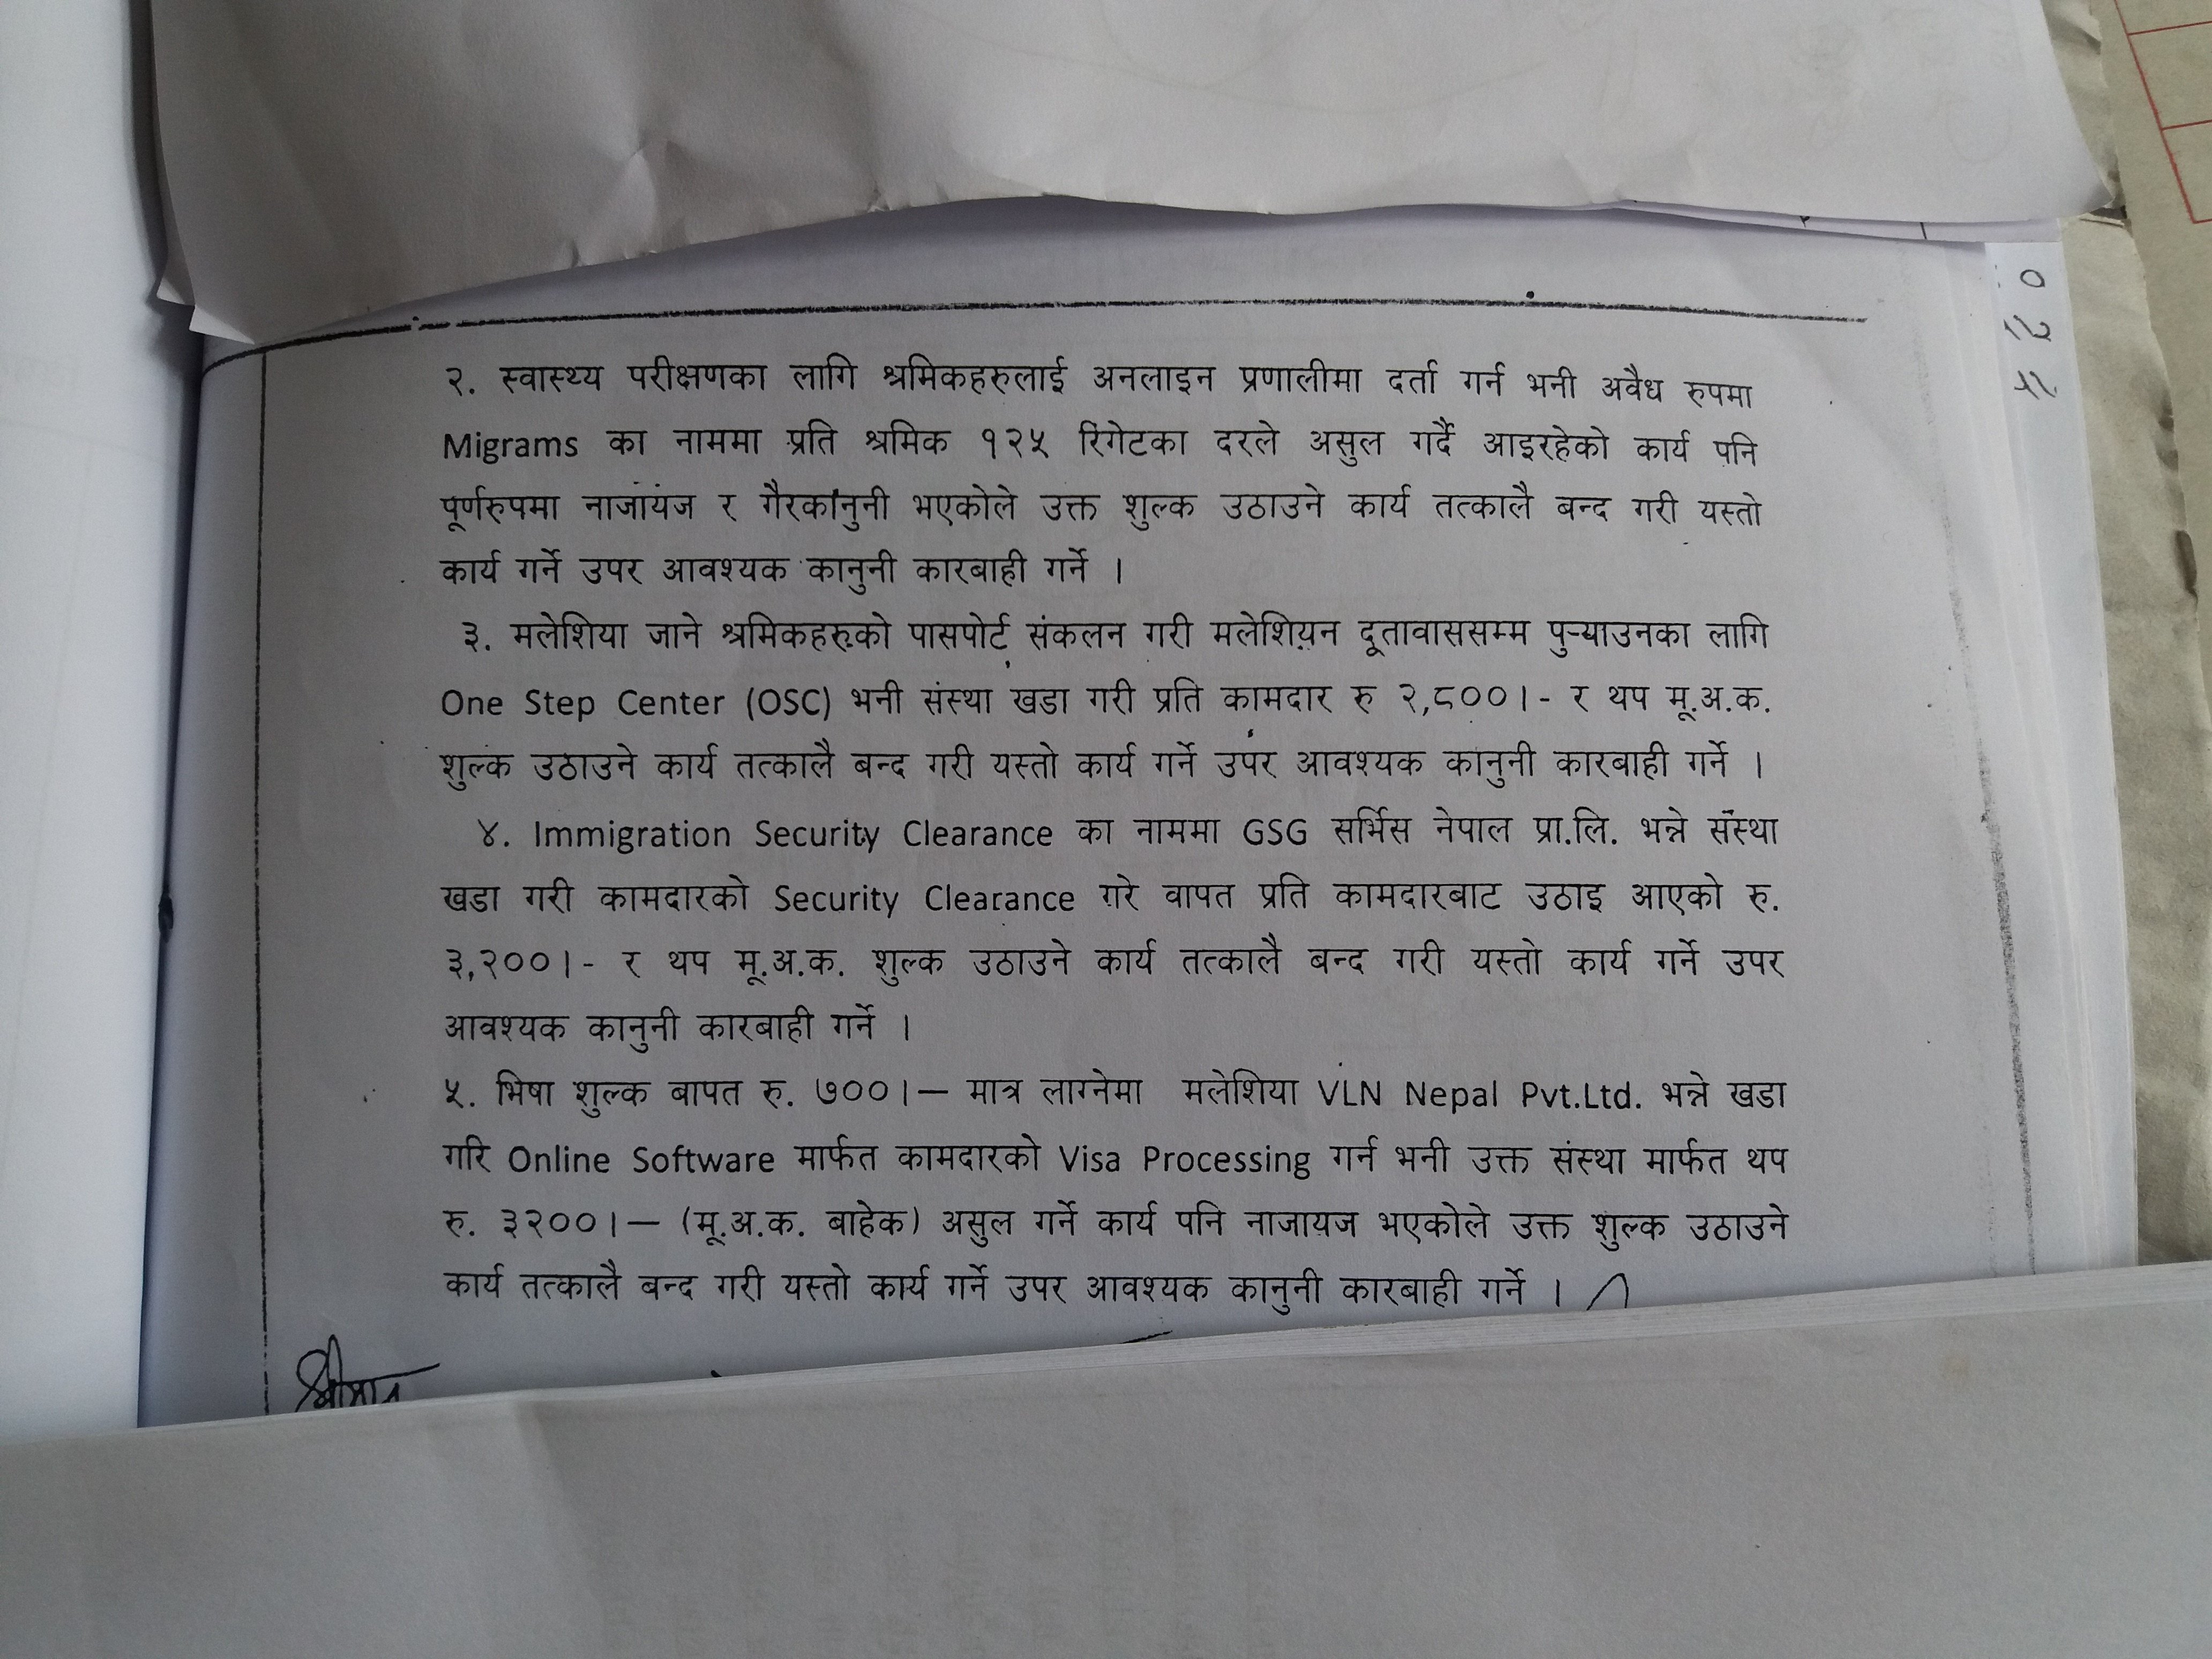 २. स्वास्थ्य परीक्षणका लागि श्रमिकहरुलाई अनलाइन प्रणालीमा दर्ता गर्न भनी अवैध रुपमा
Migrams का नाममा प्रति श्रमिक १२५ रिंगेटका दरले असुल गर्दै आइरहेको कार्य पनि
पूर्णरुपमा नाजायज र गैरकानुनी भएकोले उक्त शुल्क उठाउने कार्य तत्कालै बन्द गरी यस्तो
कार्य गर्ने उपर आवश्यक कानुनी कारबाही गर्ने ।
३. मलेशिया जाने श्रमिकहरुको पासपोर्ट संकलन गरी मलेशियन दूतावाससम्म पुऱ्याउनका लागि
One Step Center (OSC) भनी संस्था खडा गरी प्रति कामदार रु २,८००।- र थप मू.अ.क.
शुल्क उठाउने कार्य तत्कालै बन्द गरी यस्तो कार्य गर्ने उपर आवश्यक कानुनी कारबाही गर्ने ।
४. Immigration Security Clearance का नाममा GSG सर्भिस नेपाल प्रा.लि. भन्ने संस्था
खडा गरी कामदारको Security Clearance गरे वापत प्रति कामदारबाट उठाइ आएको रु.
३,२००।- र थप मू.अ.क. शुल्क उठाउने कार्य तत्कालै बन्द गरी यस्तो कार्य गर्ने उपर
आवश्यक कानुनी कारबाही गर्ने ।
५. भिषा शुल्क बापत रु. ७००।– मात्र लाग्नेमा मलेशिया VLN Nepal Pvt.Ltd. भन्ने खडा
गरि Online Software मार्फत कामदारको Visa Processing गर्न भनी उक्त संस्था मार्फत थप
रु. ३२००।– (मू.अ.क. बाहेक) असुल गर्ने कार्य पनि नाजायज भएकोले उक्त शुल्क उठाउने
कार्य तत्कालै बन्द गरी यस्तो कार्य गर्ने उपर आवश्यक कानुनी कारबाही गर्ने ।